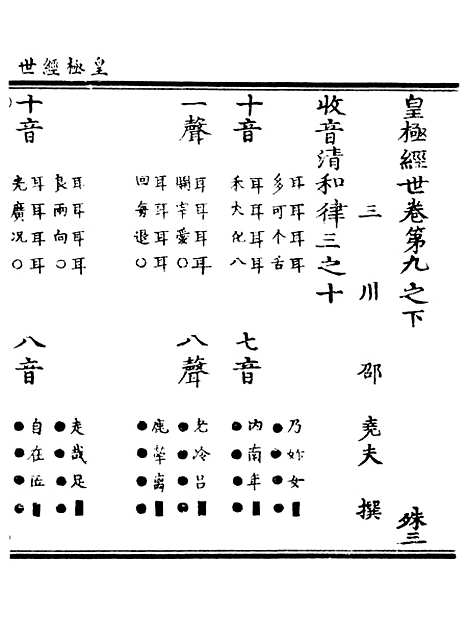 皇極經世
皇極經世卷第九之下 殊三
三川 邵 堯夫 撰
收音清和律三之十
十音 七音
耳耳耳耳 乃妳女■
多可个舌 ●●●●
耳耳耳耳 內南年■
禾大化八 ●●●●
一聲 八聲
耳耳耳耳 老冷呂■
開宰愛○ ●●●●
耳耳耳耳 鹿犖离■
回每退○ ●●●●
十音 八音
耳耳耳耳 走哉足■
良兩向○ ●●●●
耳耳耳耳 自在匠■
光廣况○ ●●●●